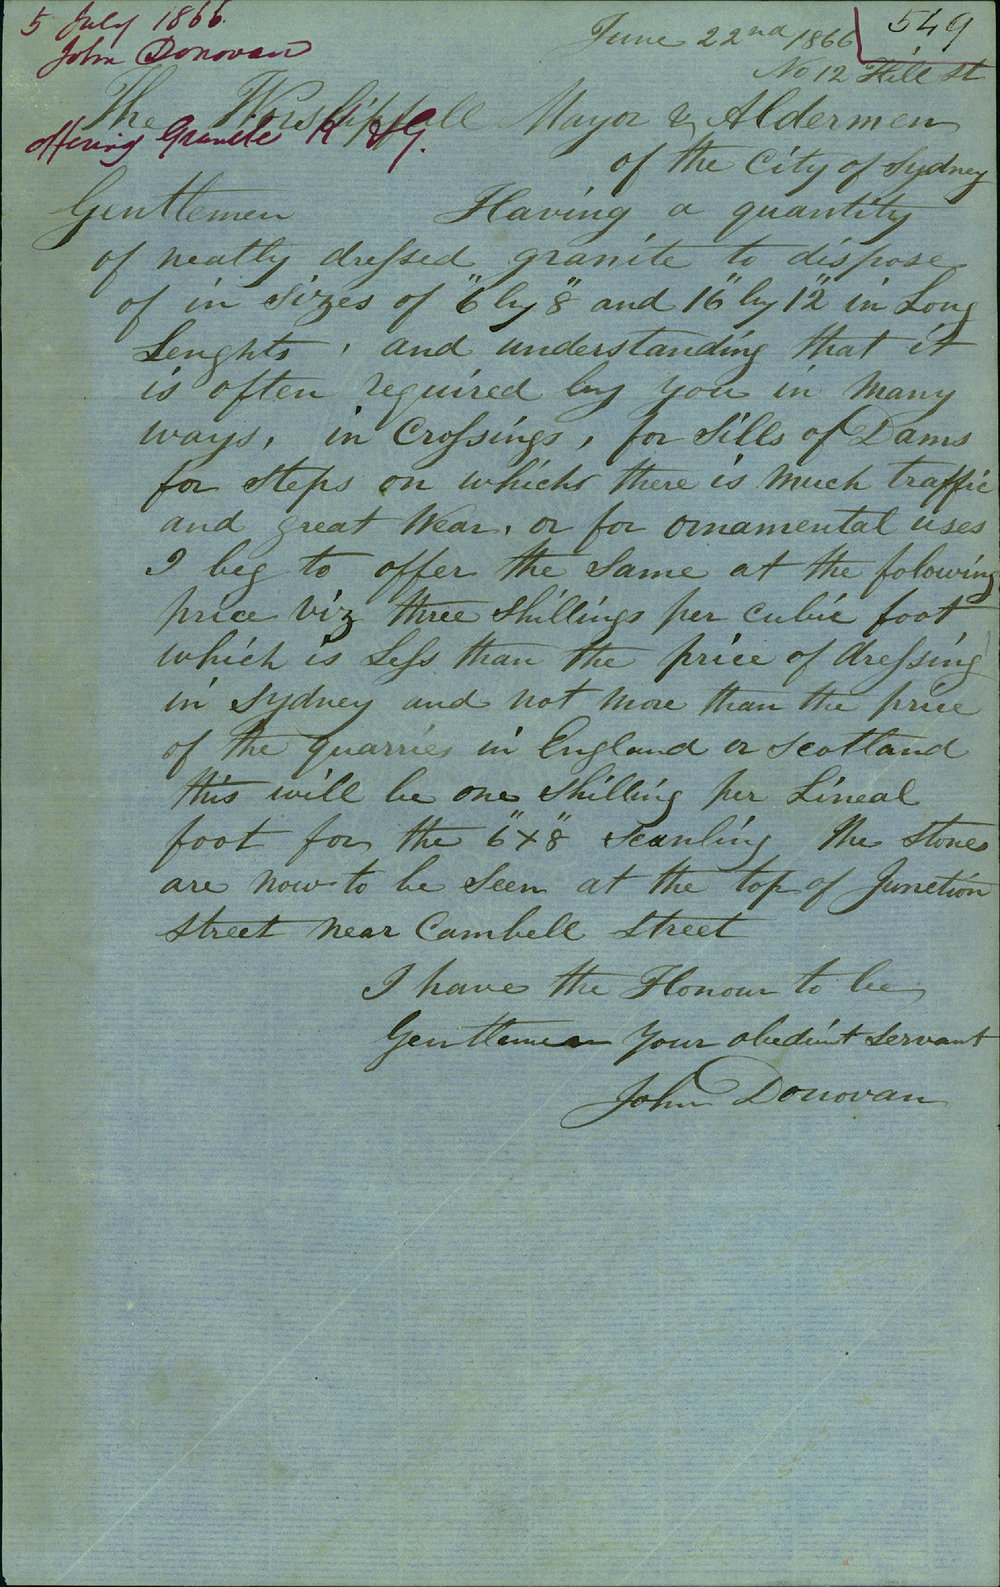 5 July 1866
John Donovan
Offering Granite K
549
June 22nd 1866
No 12 Hill St
The Worshipfull Mayor & Aldermen
of the City of Sydney
Gentlemen Having a quantity
of neatly dressed granite to dispose
of in sizes of "6 by "8 and 16" by 12" in Long
Lenghts, and understanding that it
is often required by you in many
ways, in Crossings, for Sills of Dams
for steps on which there is much traffic
and great wear, or for ornamental uses
I beg to offer the same at the folowing
price viz three shillings per cubic foot
which is Less than the price of dressing
in Sydney and not more than the price
of the quarries in England or Scotland
this will be one shilling per Lineal
foot for the "6 x "8 Scanling The stones
are now to be seen at the top of Junction
street near Cambell street
I have the Honour to be
Gentlemen your obedint servant
John Donovan